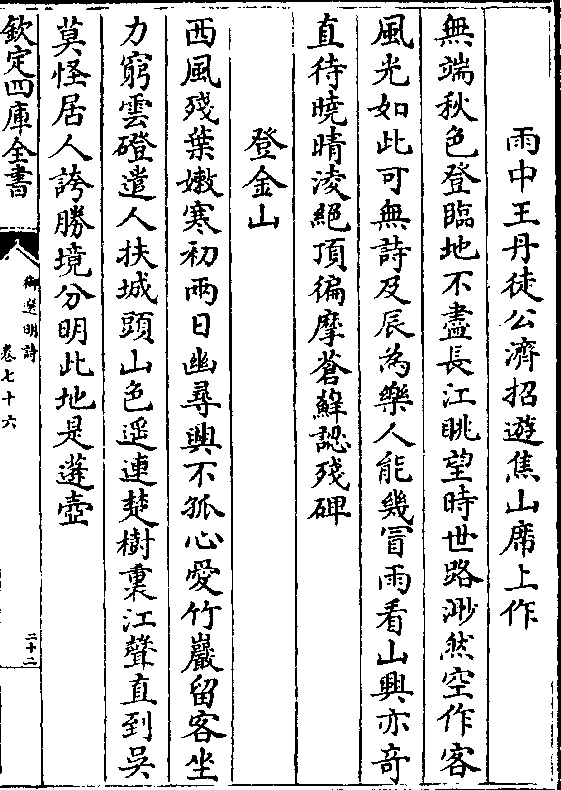 雨中王丹徒公濟招遊焦山席上作
無端秋色登臨地不盡長江眺望時世路渺然空作客
風光如此可無詩及辰為樂人能幾冒雨看山興亦竒
直待曉晴淩絕頂徧摩蒼蘚認殘碑
登金山
西風殘葉嫩寒初兩日幽尋興不孤心愛竹巖留客坐
力窮雲磴遣人扶城頭山色遥連楚樹裏江聲直到吳
莫怪居人誇勝境分明此地是蓬壺
欽定四庫全書
御選明詩
卷七十六
二十二